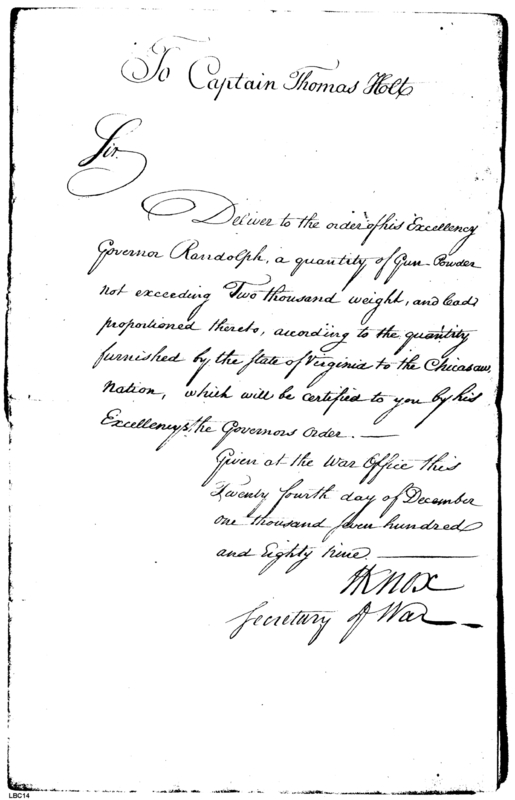 To Captain Thomas Holt
Sir.
Deliver to the order of his Excellency
Governor Randolph, a quantity of Gun-Powder
not exceeding Two thousand weight, and lead
proportioned thereto, according to the quantity
furnished by the State of Virginia to the Chicasaw
Nation, which will be certified to you by his
Excellencys the Governors order. —
Given at the War Office this
Twenty fourth day of December
one thousand seven hundred
and Eighty nine. —
HKnox
Secretary of War —
LBC14